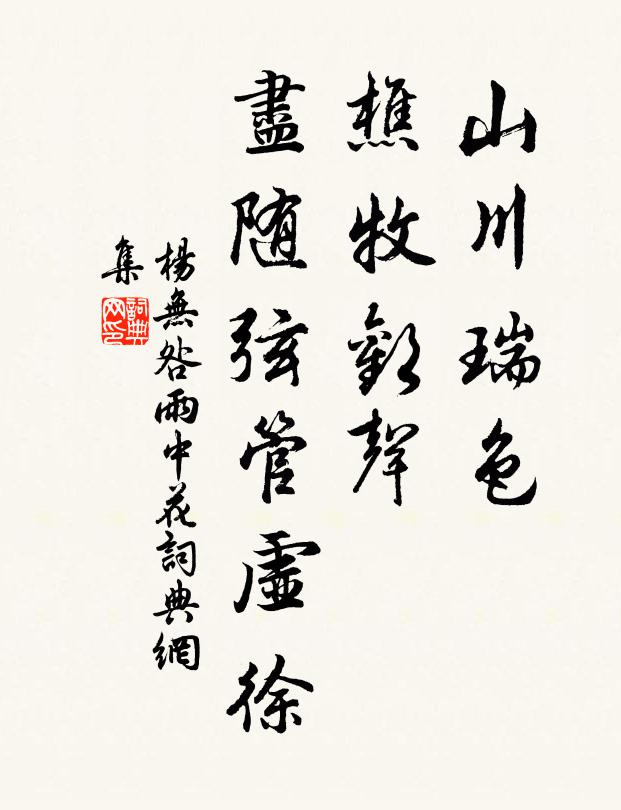 山川瑞色
樵牧歡聲
盡随弦管虛徐
楊無咎雨中花詞典網
集
詞典
网印